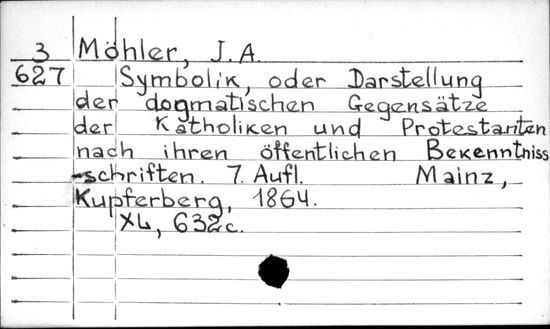 3 Möhler, J.A.
627 Symbolik, oder Darstellung
der dogmatischen Gegensätze
der Katholiken und Protestanten
nach ihren öffentlichen Bekenntniss
-schriften. 7. Aufl. Mainz,
Kupferberg, 1864.
XL, 632c.